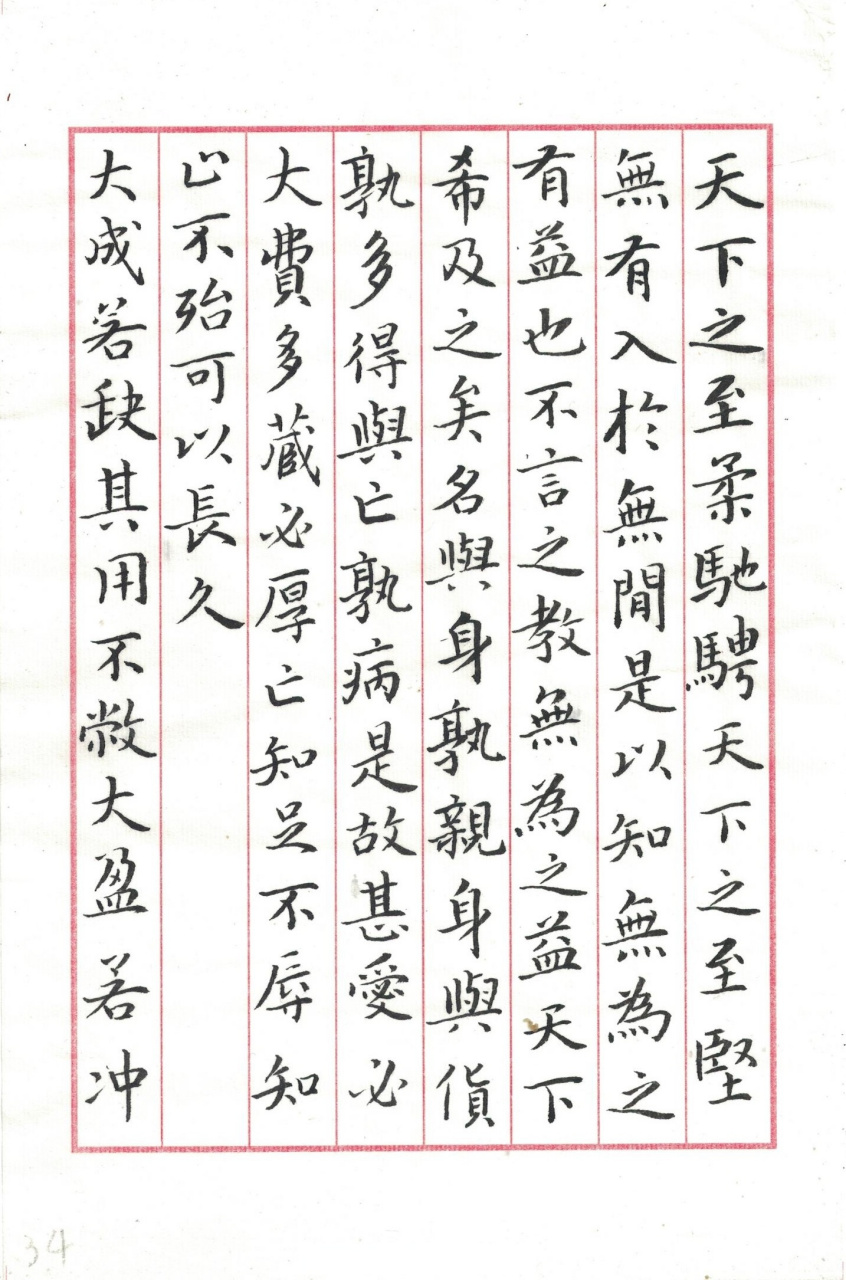 天下之至柔馳騁天下之至堅
無有入於無間是以知無為之
有益也不言之教無為之益天下
希及之矣名與身孰親身與貨
孰多得與亡孰病是故甚愛必
大費多蔵必厚亡知足不辱知
止不殆可以長久
大成若缺其用不敝大盈若冲
34